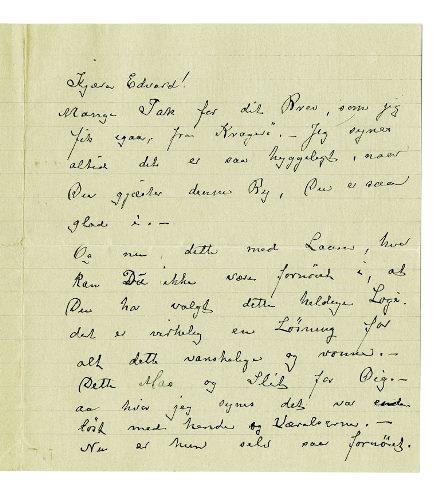 Kjære Edvard!
Mange Tak for dit Brev, som jeg
fik igaar, fra Kragerö. – Jeg synes
altid det er saa hyggeligt, naar
Du gjæster denne By, Du er saa
glad i. –
Og nu dette med Laura, hvor
kan Du ikke være fornöiet i, at
Du har valgt dette heldige Logi.
det er virkelig en Lösning for
alt dette vanskelige og vonne. –
Dette Mas og Slit for Dig. –
aa hvor jeg synes det var
löst med hende og Læralserne. –
Nu er hun selv saa fornöiet.